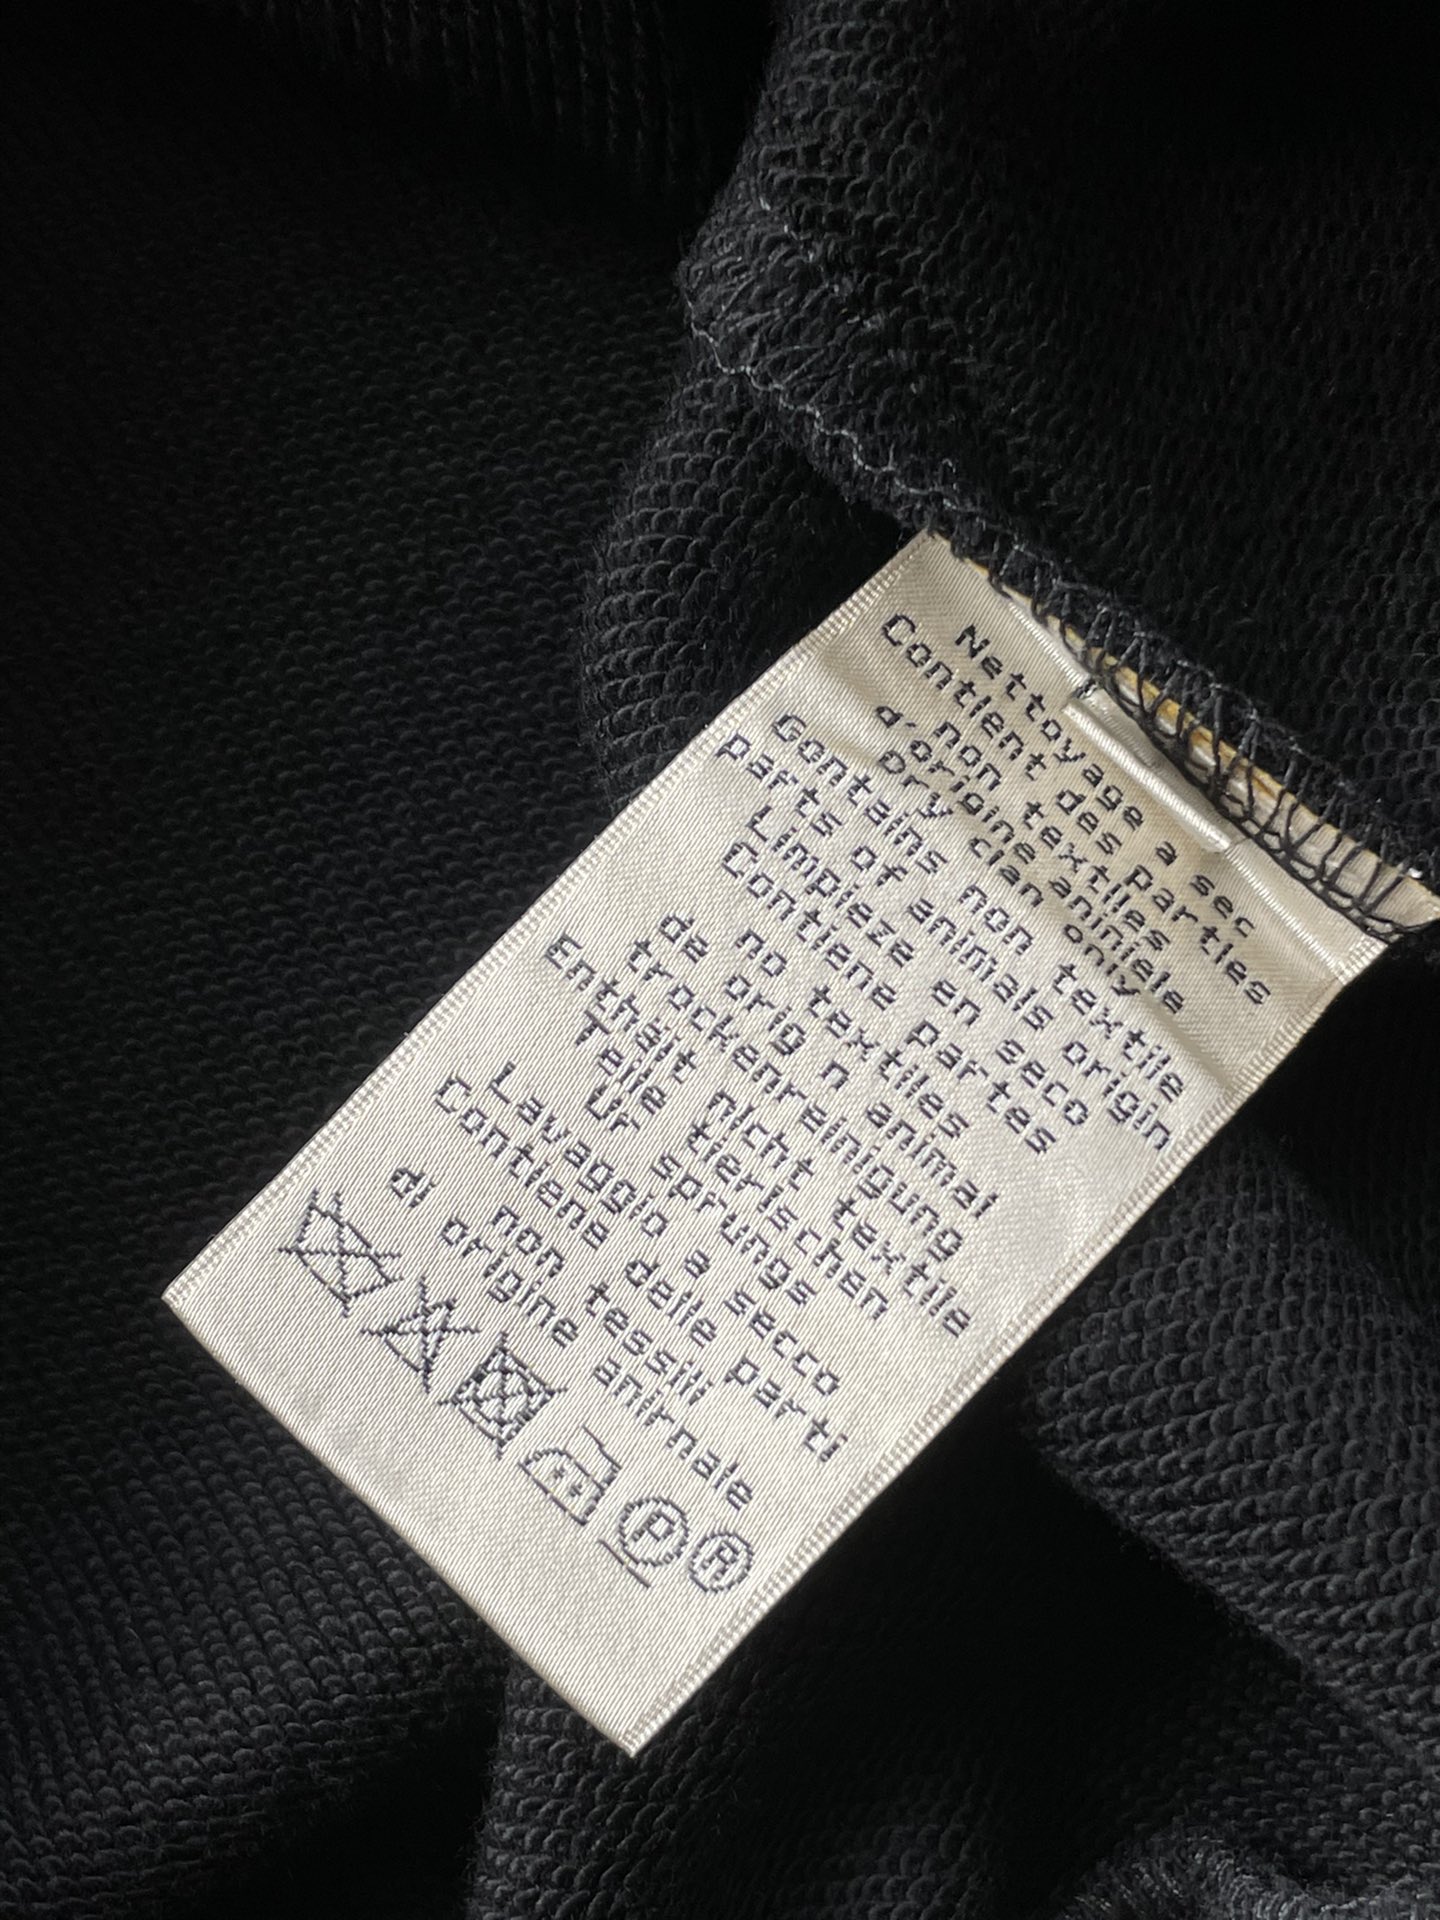 Nettoyage a sec
Contient des parties
non textiles
d'origine aniniele
Dry clan only
Gontains non textile
parts of animals origin
Limpieze en seco
Contiene partes
no textiles
de orig n animal
trockenreinigung
Enthält nicht textile
Teile tierischen
Ur sprungs
Lavaggio a secco
Contiene delle parti
non tessili
di origine anirnale
P R